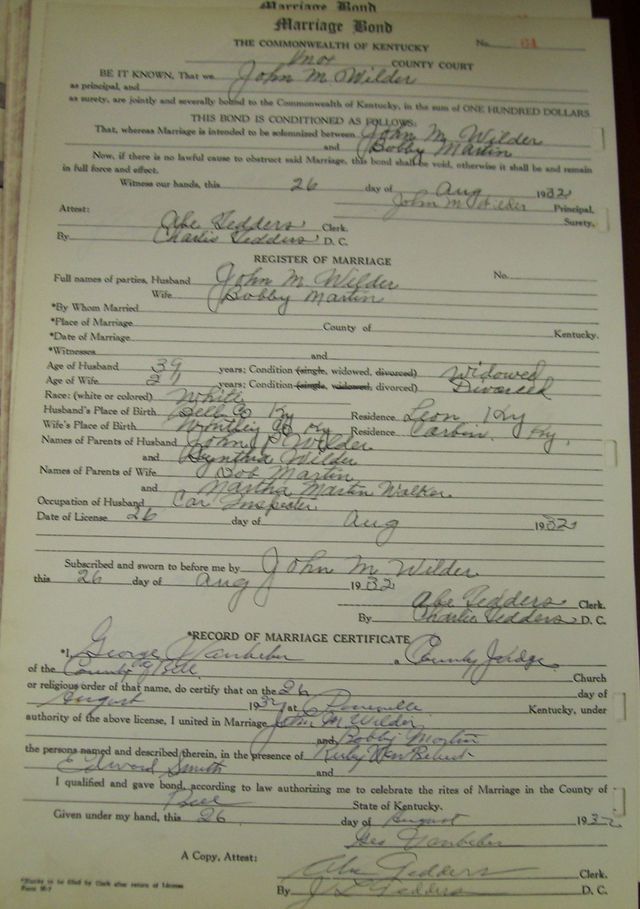 Marriage Bond
Marriage Bond
THE COMMONWEALTH OF KENTUCKY
No. 61
Knox COUNTY COURT
BE IT KNOWN, That we John M Wilder
as principal, and
as surety, are jointly and severally bound to the Commonwealth of Kentucky, in the sum of ONE HUNDRED DOLLARS
THIS BOND IS CONDITIONED AS FOLLOWS:
That, whereas Marriage is intended to be solemnized between John M. Wilder
and Bobby Martin
Now, if there is no lawful cause to obstruct said Marriage, this bond shall be void, otherwise it shall be and remain
in full force and effect.
Witness our hands, this 26 day of Aug 1932
John M Wilder Principal.
Attest: Surety.
Abe Tedders Clerk.
By Charlie Tedders D. C.
REGISTER OF MARRIAGE
Full names of parties, Husband John M. Wilder No.
Wife Bobby Martin
*By Whom Married
*Place of Marriage County of Kentucky.
*Date of Marriage
*Witnesses and
Age of Husband 39 years; Condition (single, widowed, divorced) Widowed
Age of Wife years; Condition (single, widowed, divorced) Divorced
Race: (white or colored) White
Husband's Place of Birth Bell Co Ky Residence Leon Ky
Wife's Place of Birth Co Ky Residence Corbin, Ky.
Names of Parents of Husband John Wilder
and Cynthia Wilder
Names of Parents of Wife Bob Martin
and Martha Martin Walker
Occupation of Husband Car Inspector
Date of License 26 day of Aug 1932
Subscribed and sworn to before me by John M Wilder
this 26 day of Aug 1932
Abe Tedders Clerk.
By Charlie Tedders D. C.
*RECORD OF MARRIAGE CERTIFICATE
*I, George Vanbeber a County Judge
of the County of Bell Church
or religious order of that name, do certify that on the 26 day of
August 1932 at Pineville Kentucky, under
authority of the above license, I united in Marriage John M Wilder
and Bobby Martin
the persons named and described therein, in the presence of Ruby
Edward Smith and
I qualified and gave bond, according to law authorizing me to celebrate the rites of Marriage in the County of
Bell State of Kentucky.
Given under my hand, this 26 day of August 1932
Geo Vanbeber
A Copy, Attest:
Abe Tedders Clerk.
By J L Tedders D. C.
*Blanks to be filed by Clerk after return of License